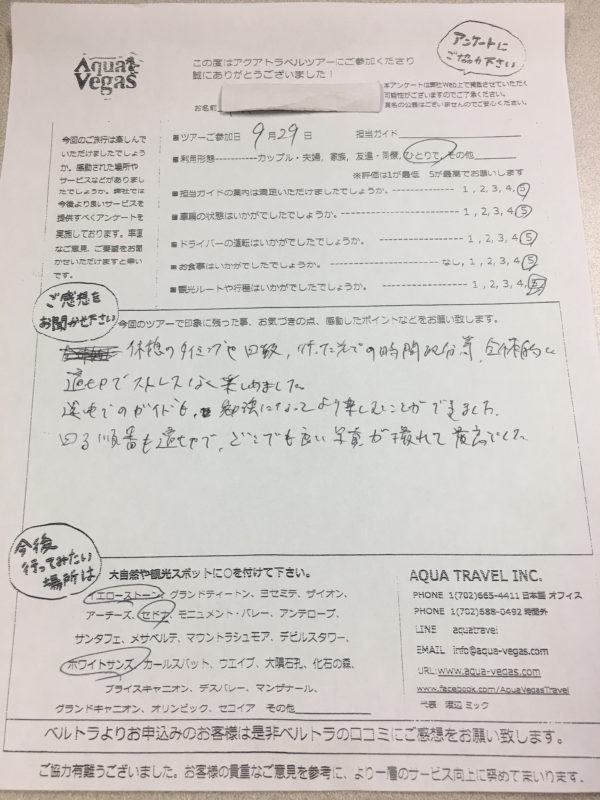 Aqua
Vegas
この度はアクアトラベルツアーにご参加くださり
誠にありがとうございました！
アンケートに
ご協力下さい
本アンケートは弊社Web上で掲載させていただく
可能性がございますのでご了承ください。
実名の公表はございませんのでご安心ください。
お名前
今回のご旅行は楽しんで
いただけましたでしょう
か。感動された場所や
サービスなどがありまし
たでしょうか。弊社では
今後より良いサービスを
提供すべくアンケートを
実施しております。率直
なご意見、ご要望をお聞
かせいただけますと幸い
です。
■ツアーご参加日 9月29日 担当ガイド
■利用形態-----------カップル・夫婦, 家族, 友達・同僚, ひとりで, その他
※評価は1が最低 5が最高でお願いします
■担当ガイドの案内は満足いただけましたでしょうか。------------------ 1, 2, 3, 4, 5
■車輛の状態はいかがでしたでしょうか。------------------ 1, 2, 3, 4, 5
■ドライバーの運転はいかがでしたでしょうか。------------------ 1, 2, 3, 4, 5
■お食事はいかがでしたでしょうか。------------------ なし, 1, 2, 3, 4, 5
■観光ルートや行程はいかがでしたでしょうか。------------------ 1, 2, 3, 4, 5
ご感想を
お聞かせ下さい
今回のツアーで印象に残った事、お気づきの点、感動したポイントなどをお願い致します。
休憩のタイミングや回数, 行った先での時間配分等, 全体的に
適切でストレスなく楽しめました。
道中でのガイドも、勉強になってより楽しむことができました。
回る順番も適切で、どこでも良い写真が撮れて最高でした
今後
行ってみたい
場所は
大自然や観光スポットに○を付けて下さい。
イエローストーン、グランドティートン、ヨセミテ、ザイオン、
アーチーズ、セドナ、モニュメント・バレー、アンテロープ、
サンタフェ、メサベルデ、マウントラシュモア、デビルスタワー、
ホワイトサンズ、カールスバット、ウエイブ、大隕石孔、化石の森、
ブライスキャニオン、デスバレー、マンザナール、
グランドキャニオン、オリンピック、セコイア その他
AQUA TRAVEL INC.
PHONE 1(702)665-4411 日本語 オフィス
PHONE 1(702)588-0492 時間外
LINE aquatravel
EMAIL info@aqua-vegas.com
URL:www.aqua-vegas.com
www.facebook.com/AquaVegasTravel
代表 渡辺 ミック
ベルトラよりお申込みのお客様は是非ベルトラの口コミにご感想をお願い致します。
ご協力有難うございました。お客様の貴重なご意見を参考に、より一層のサービス向上に努めてまいります。